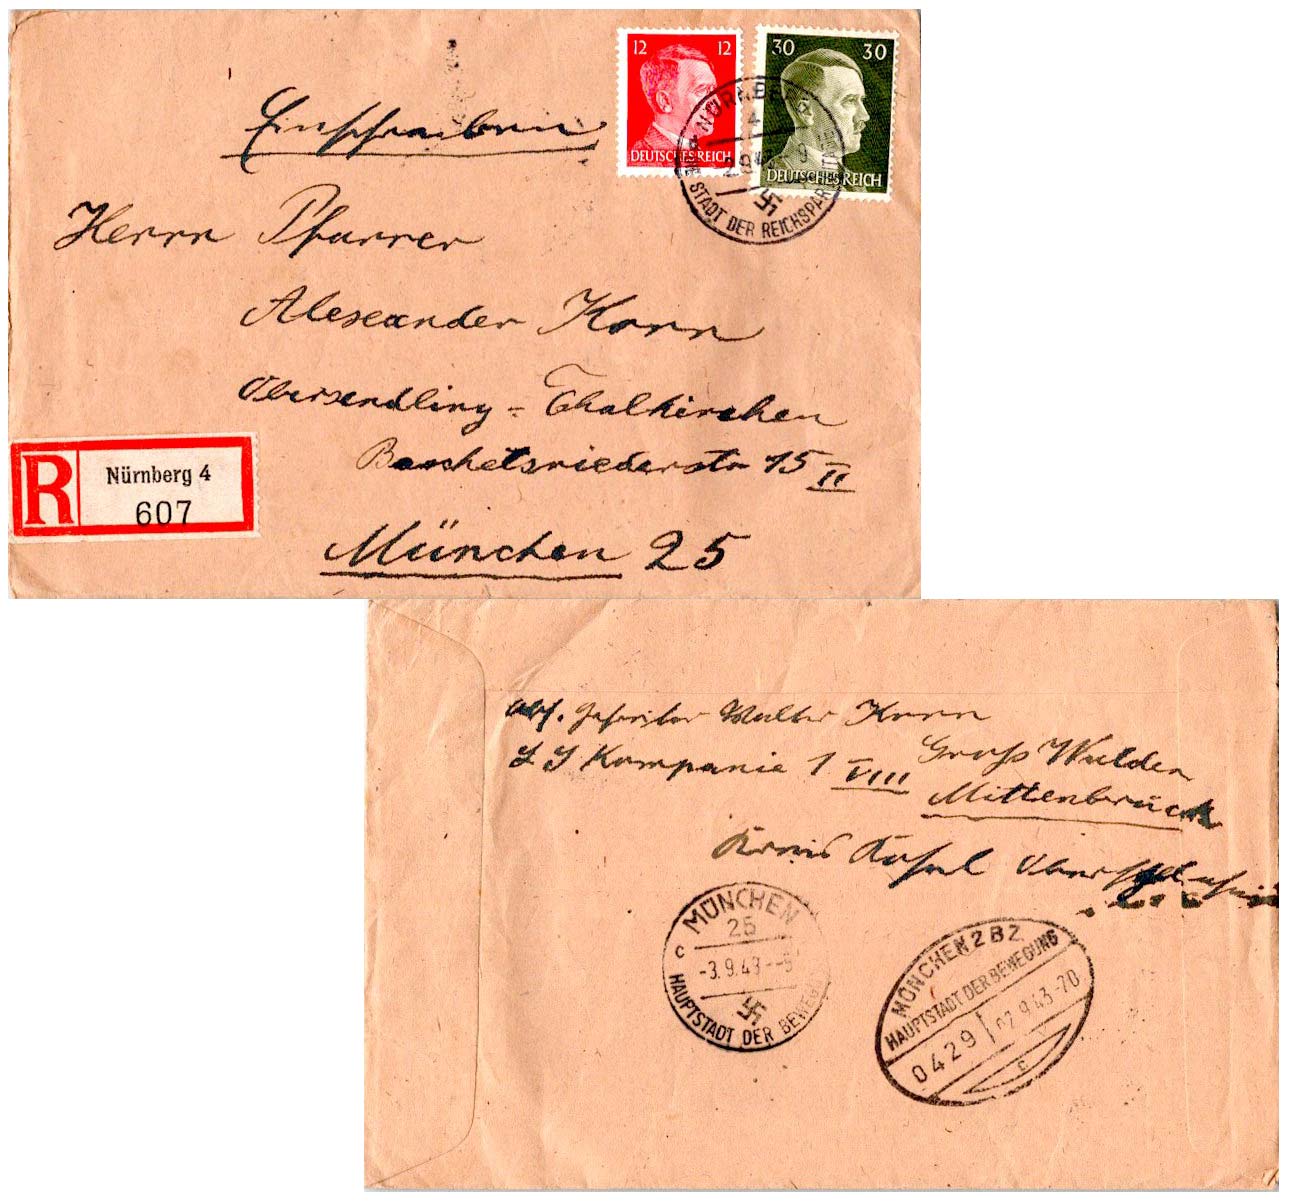 Einschreiben
12 12
DEUTSCHES REICH
30 30
DEUTSCHES REICH
NÜRNBERG
4
2.9.43 9
STADT DER REICHSPAR
Herrn Pfarrer
Alexander Korn
Obersendling - Thalkirchen
15 II
München 25
R
Nürnberg 4
607
Abs. Gefreiter Walter Korn
LS Kompanie 1 VIII Gross Walden
Mittenbrück
Kreis Kosel Oberschlesien
MÜNCHEN
25
c
-3.9.43
HAUPTSTADT DER BEWEGU
MÜNCHEN 2 BZ
HAUPTSTADT DER BEWEGUNG
0429 02.9.43-70
c